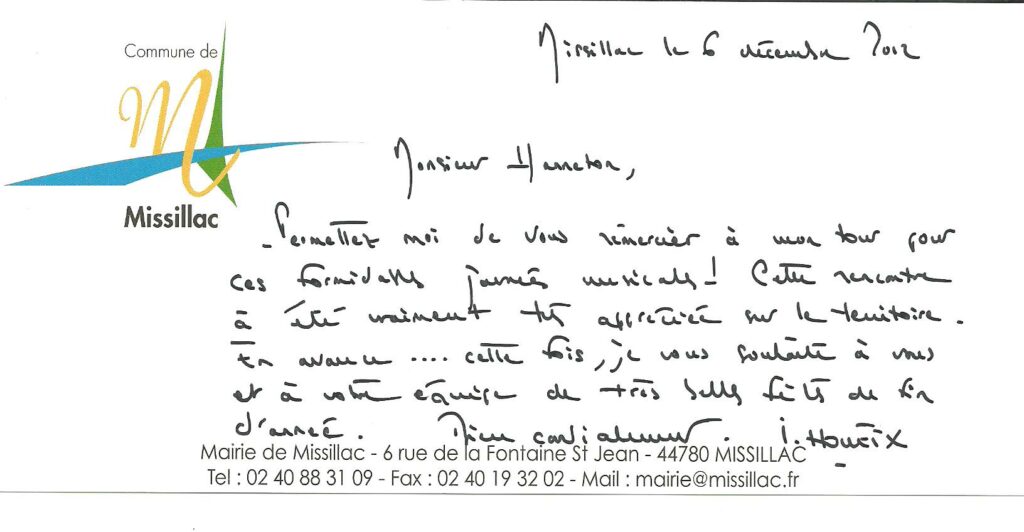 Commune de
Missillac
Missillac le 6 décembre 2012
Monsieur Hanneton,
Permettez moi de vous remercier à mon tour pour
ces formidables journées musicales ! Cette rencontre
à été vraiment très appréciée sur le territoire.
En avance .... cette fois, je vous souhaite à vous
et à votre équipe de très belles fêtes de fin
d'année. Bien cordialement. I. Houeix
Mairie de Missillac - 6 rue de la Fontaine St Jean - 44780 MISSILLAC
Tel : 02 40 88 31 09 - Fax : 02 40 19 32 02 - Mail : mairie@missillac.fr